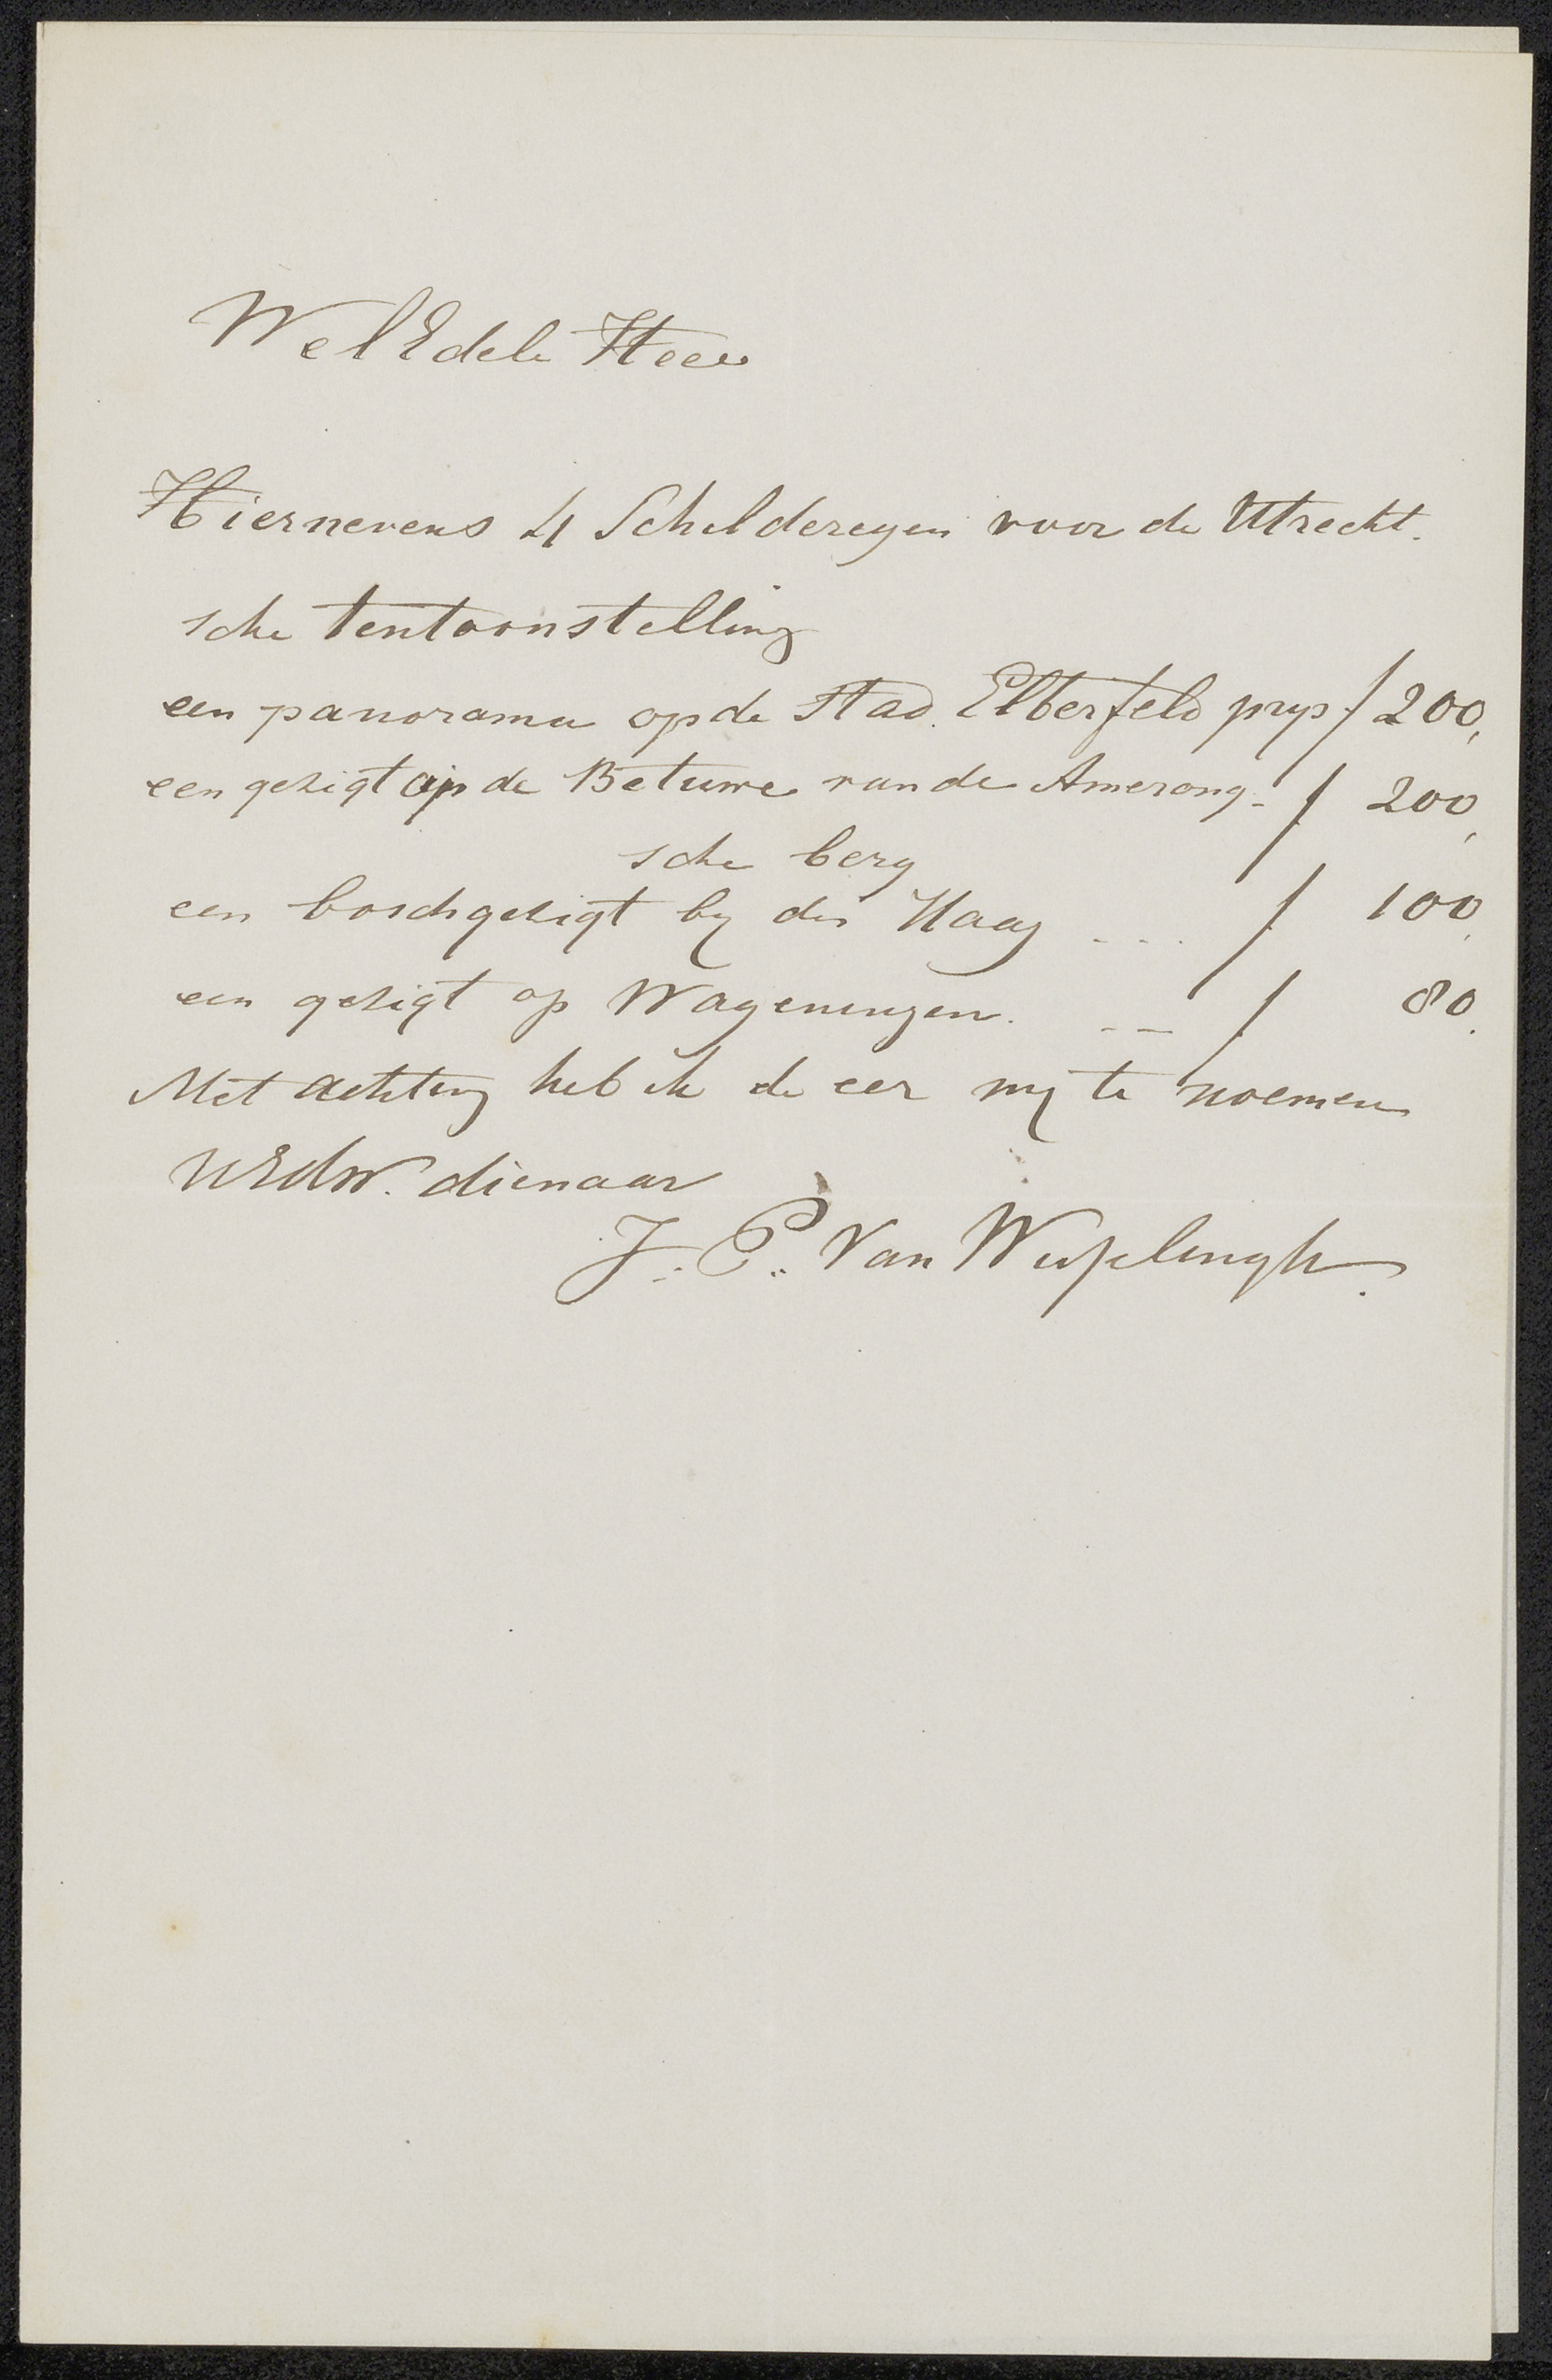 WelEdele Heer
Hiernevens 4 Schildereyen voor de Utrecht.
sche tentoonstelling
een panorama op de Stad. Elberfeld prys f 200,
een gezigt op de Betuwe van de Amerong- f 200,
sche berg
een boschgezigt by den Haag ... f 100,
een gezigt op Wageningen. -- f 80.
Met achting heb ik de eer my te noemen
UEdw. dienaar
J. P. Van Wisselingh.